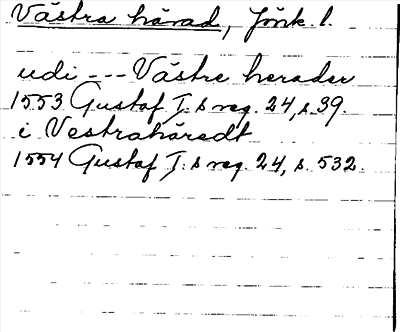 Västra härad, Jönk. l.
udi --- Västre herader
1553 Gustaf I:s reg. 24, s. 39.
i Vestrahäredt
1554 Gustaf I:s reg. 24, s. 532.